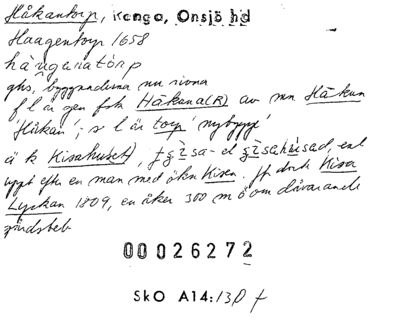 Håkantorp, Konga, Onsjö hd
Haagentorp 1658
håŋanatórp
ghs, byggnaderna nu rivna
f l är gen fsk Håkana(R) av mn Håkan
'Håkan'; s l är torp 'nybygge'
ä k Kisahuset, enl
uppg efter en man med ökn Kisen. Jf dock Kisa
Lyckan 1809, en åker 300 m ö om dåvarande
gårdsbeb
00026272
SkO A14:13D f